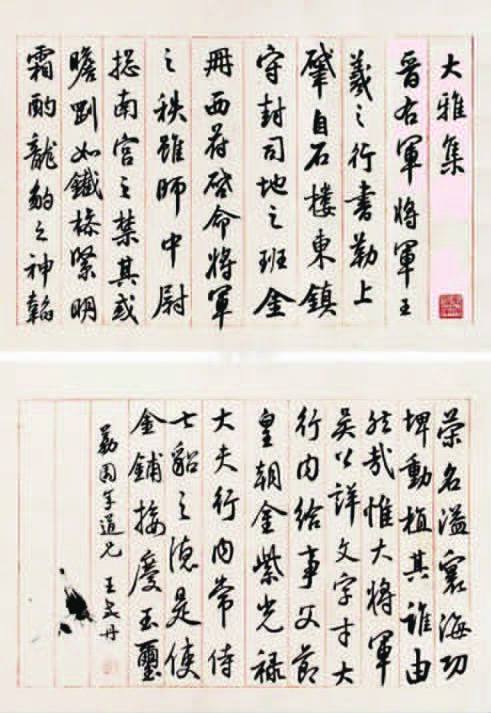 大雅集
晋右軍將軍王
羲之行書勒上
肇自石樓東鎮
守封司地之班金
冊西符啓命將軍
之秩雖師中尉
揔南宫之禁其或
瞻剛如鐵格緊明
霜酌龍豹之神韜
榮名溢寰海功
埤動植其誰由
然哉惟大將軍
矣公詳文字才大
行内給事父節
皇朝金紫光禄
大夫行内常侍
七貂之德是使
金鋪接慶玉璽
道兄 王丹